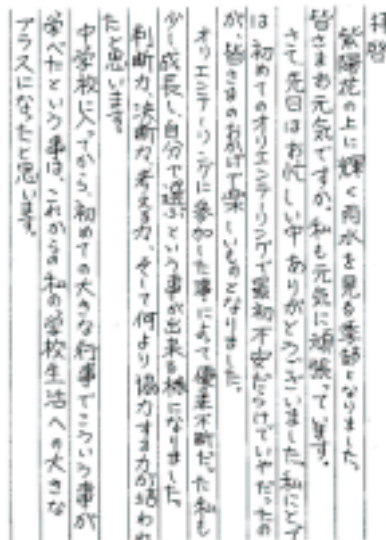 拝啓
紫陽花の上に輝く雨水を見る季節となりました。
皆さまお元気ですか。私も元気に頑張っています。
さて先日はお忙しい中ありがとうございました。私にとって
は初めてのオリエンテーリングで最初不安だらけでいやだったの
が、皆さまのおかげで楽しいものとなりました。
オリエンテーリングに参加した事によって優柔不断だった私も
少し成長し、自分で選ぶという事が出来る様になりました。
判断力、決断力、考える力、そして何より協力する力が培われ
たと思います。
中学校に入ってから、初めての大きな行事でこういう事が
学べたという事は、これからの私の学校生活への大きな
プラスになったと思います。